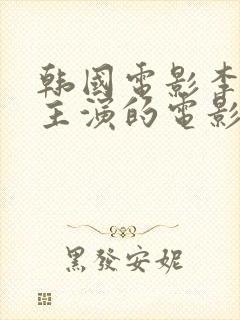 韩國電影李
主演的電影
黑發安妮